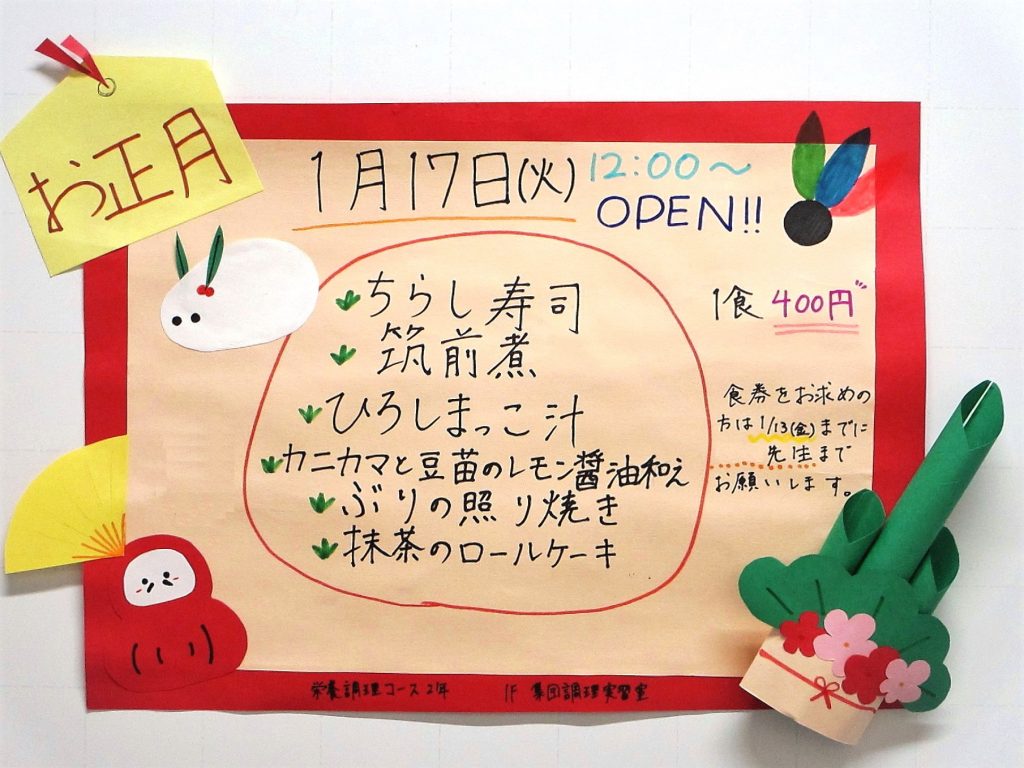 お正月
1月17日(火) 12:00〜
OPEN!!
ちらし寿司
筑前煮
ひろしまっこ汁
カニカマと豆苗のレモン醤油和え
ぶりの照り焼き
抹茶のロールケーキ
1食 400円
食券をお求めの
方は1/13(金)までに
先生まで
お願いします。
栄養調理コース2年 1F 集団調理実習室